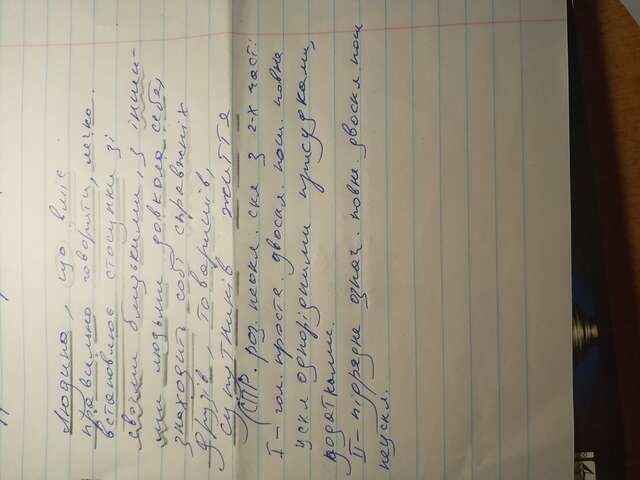 Людина, що вміє
правильно говорити, легко
встановлює стосунки зі
своїми близькими, з інши-
ми людьми довкола себе,
знаходить собі справжніх
друзів, товаришів,
супутників життя
(СПР. роз. неокл. скл з 2-х част:
I – гол. проста. двоскл. пош. повна
ускл однорідними присудками,
додатками.
II – підрядне означ. повне. двоскл пош
неускл.